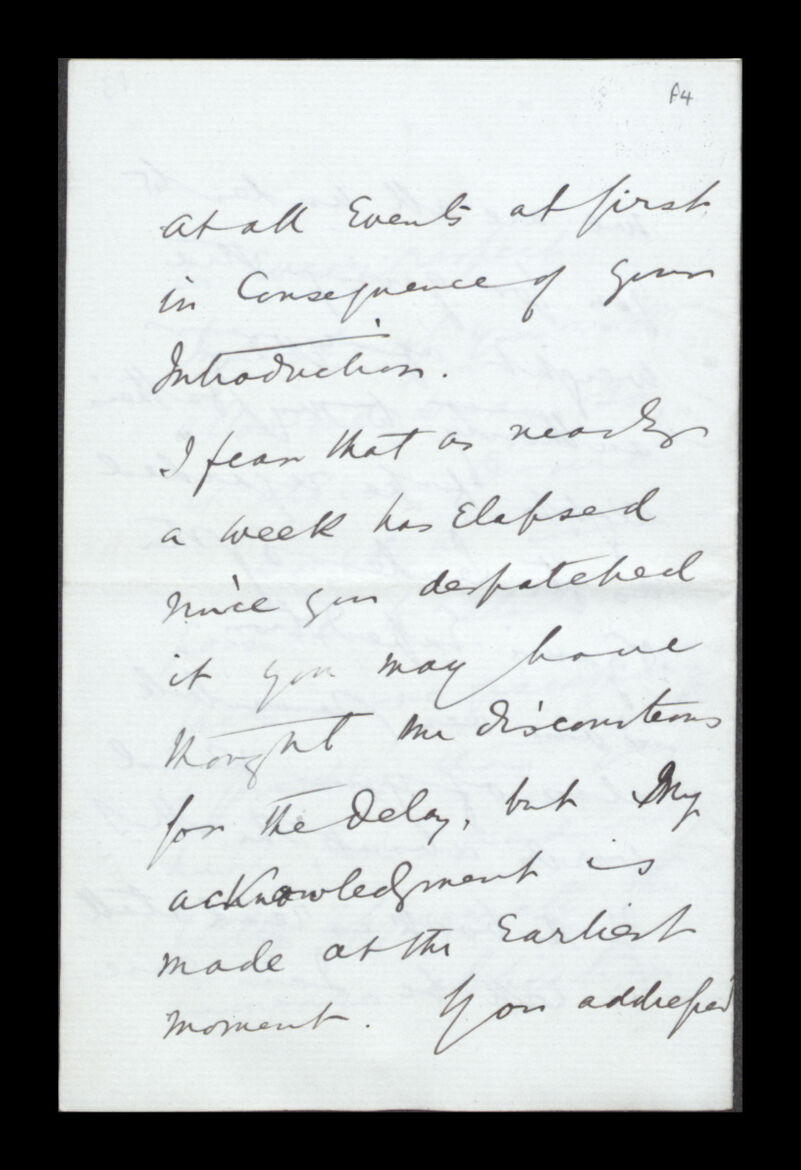 A4
at all Events at first
in Consequence of your
Introduction.
I fear that as nearly
a week has Elapsed
since you despatched
it you may have
thought me discourteous
for the delay, but My
acknowledgment is
made at the Earliest
moment. You addressed